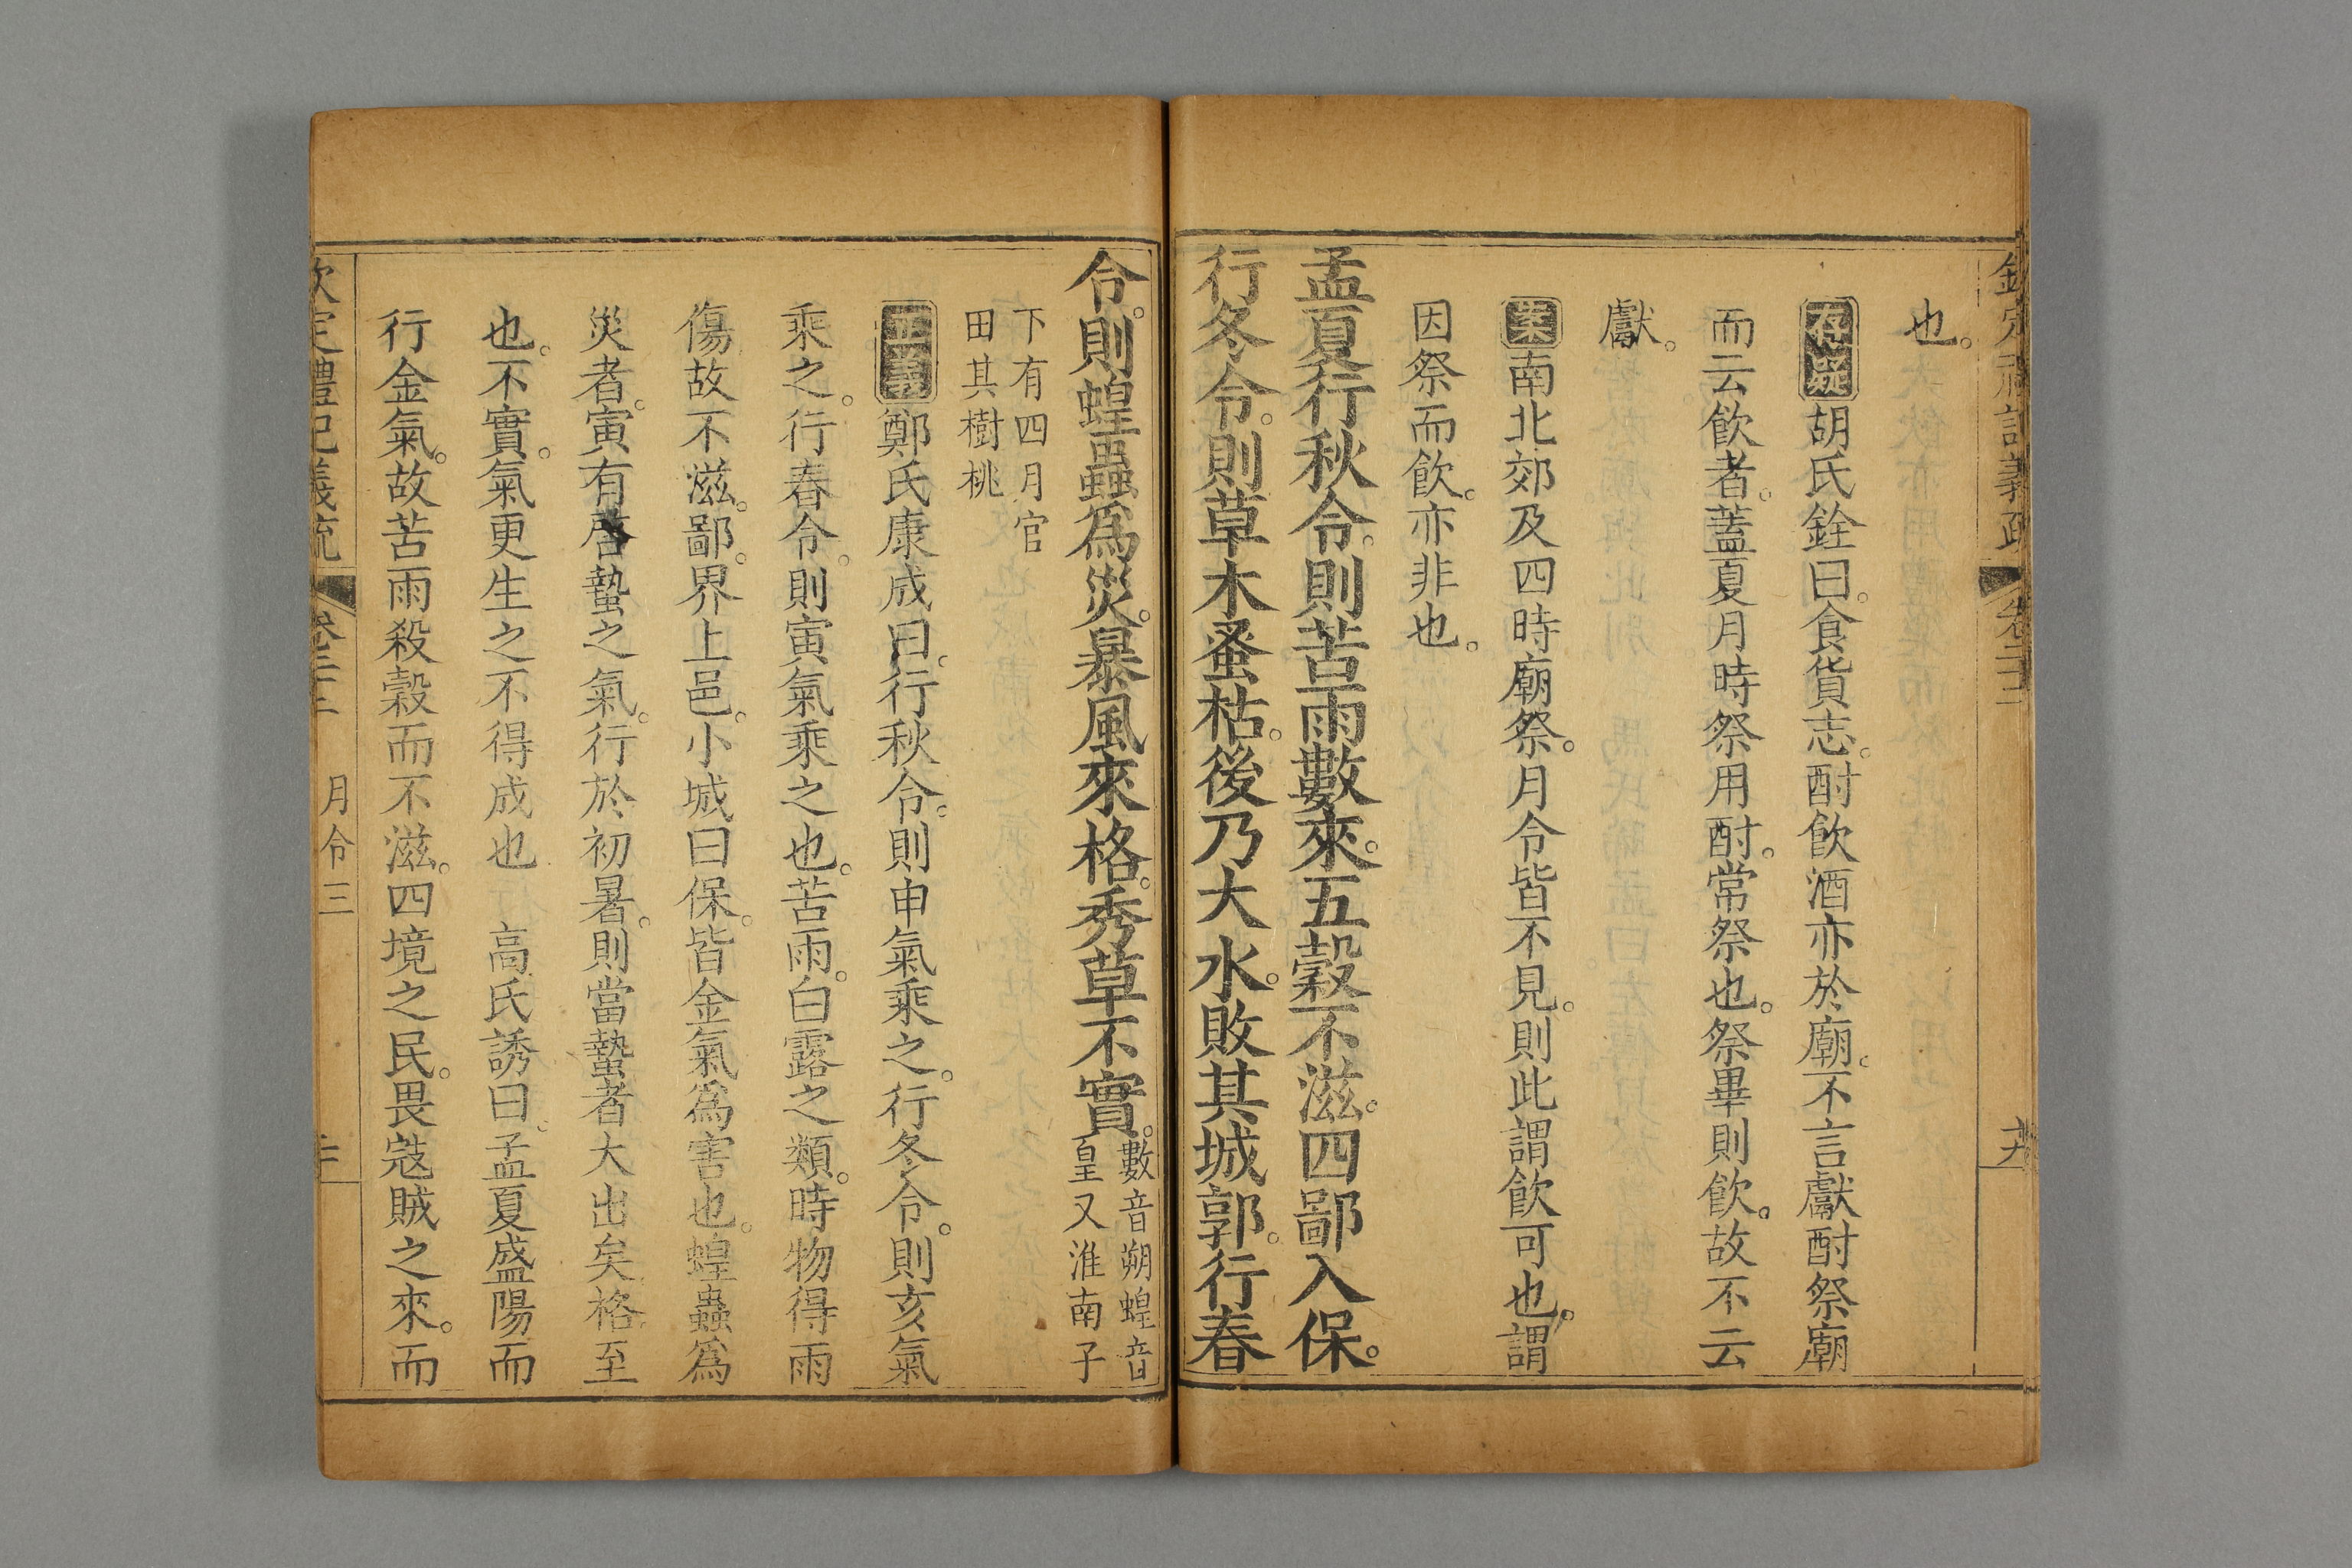 也。
存疑胡氏銓曰。食貨志。酎飲酒亦於廟。不言獻酎祭廟
而云飲者。蓋夏月時祭用酎。常祭也。祭畢則飲。故不云
獻。
案南北郊及四時廟祭。月令皆不見。則此謂飲可也。謂
因祭而飲。亦非也。
孟夏行秋令。則苦雨數來。五穀不滋。四鄙入保。
行冬令。則草木蚤枯。後乃大水。敗其城郭。行春
令。則蝗蟲為災。暴風來格。秀草不實。
數音朔蝗音
皇又淮南子
下有四月官
田其樹桃
正義鄭氏康成曰。行秋令。則申氣乘之。行冬令。則亥氣
乘之。行春令。則寅氣乘之也。苦雨。白露之類。時物得雨
傷故不滋。鄙。界上邑。小城曰保。皆金氣為害也。蝗蟲為
災者。寅有啓蟄之氣。行於初暑。則當蟄者大出矣格。至
也。不實。氣更生之不得成也　高氏誘曰。孟夏盛陽而
行金氣。故苦雨殺穀而不滋。四境之民。畏寇賊之來。而
欽定禮記義疏 卷二十二 月令三